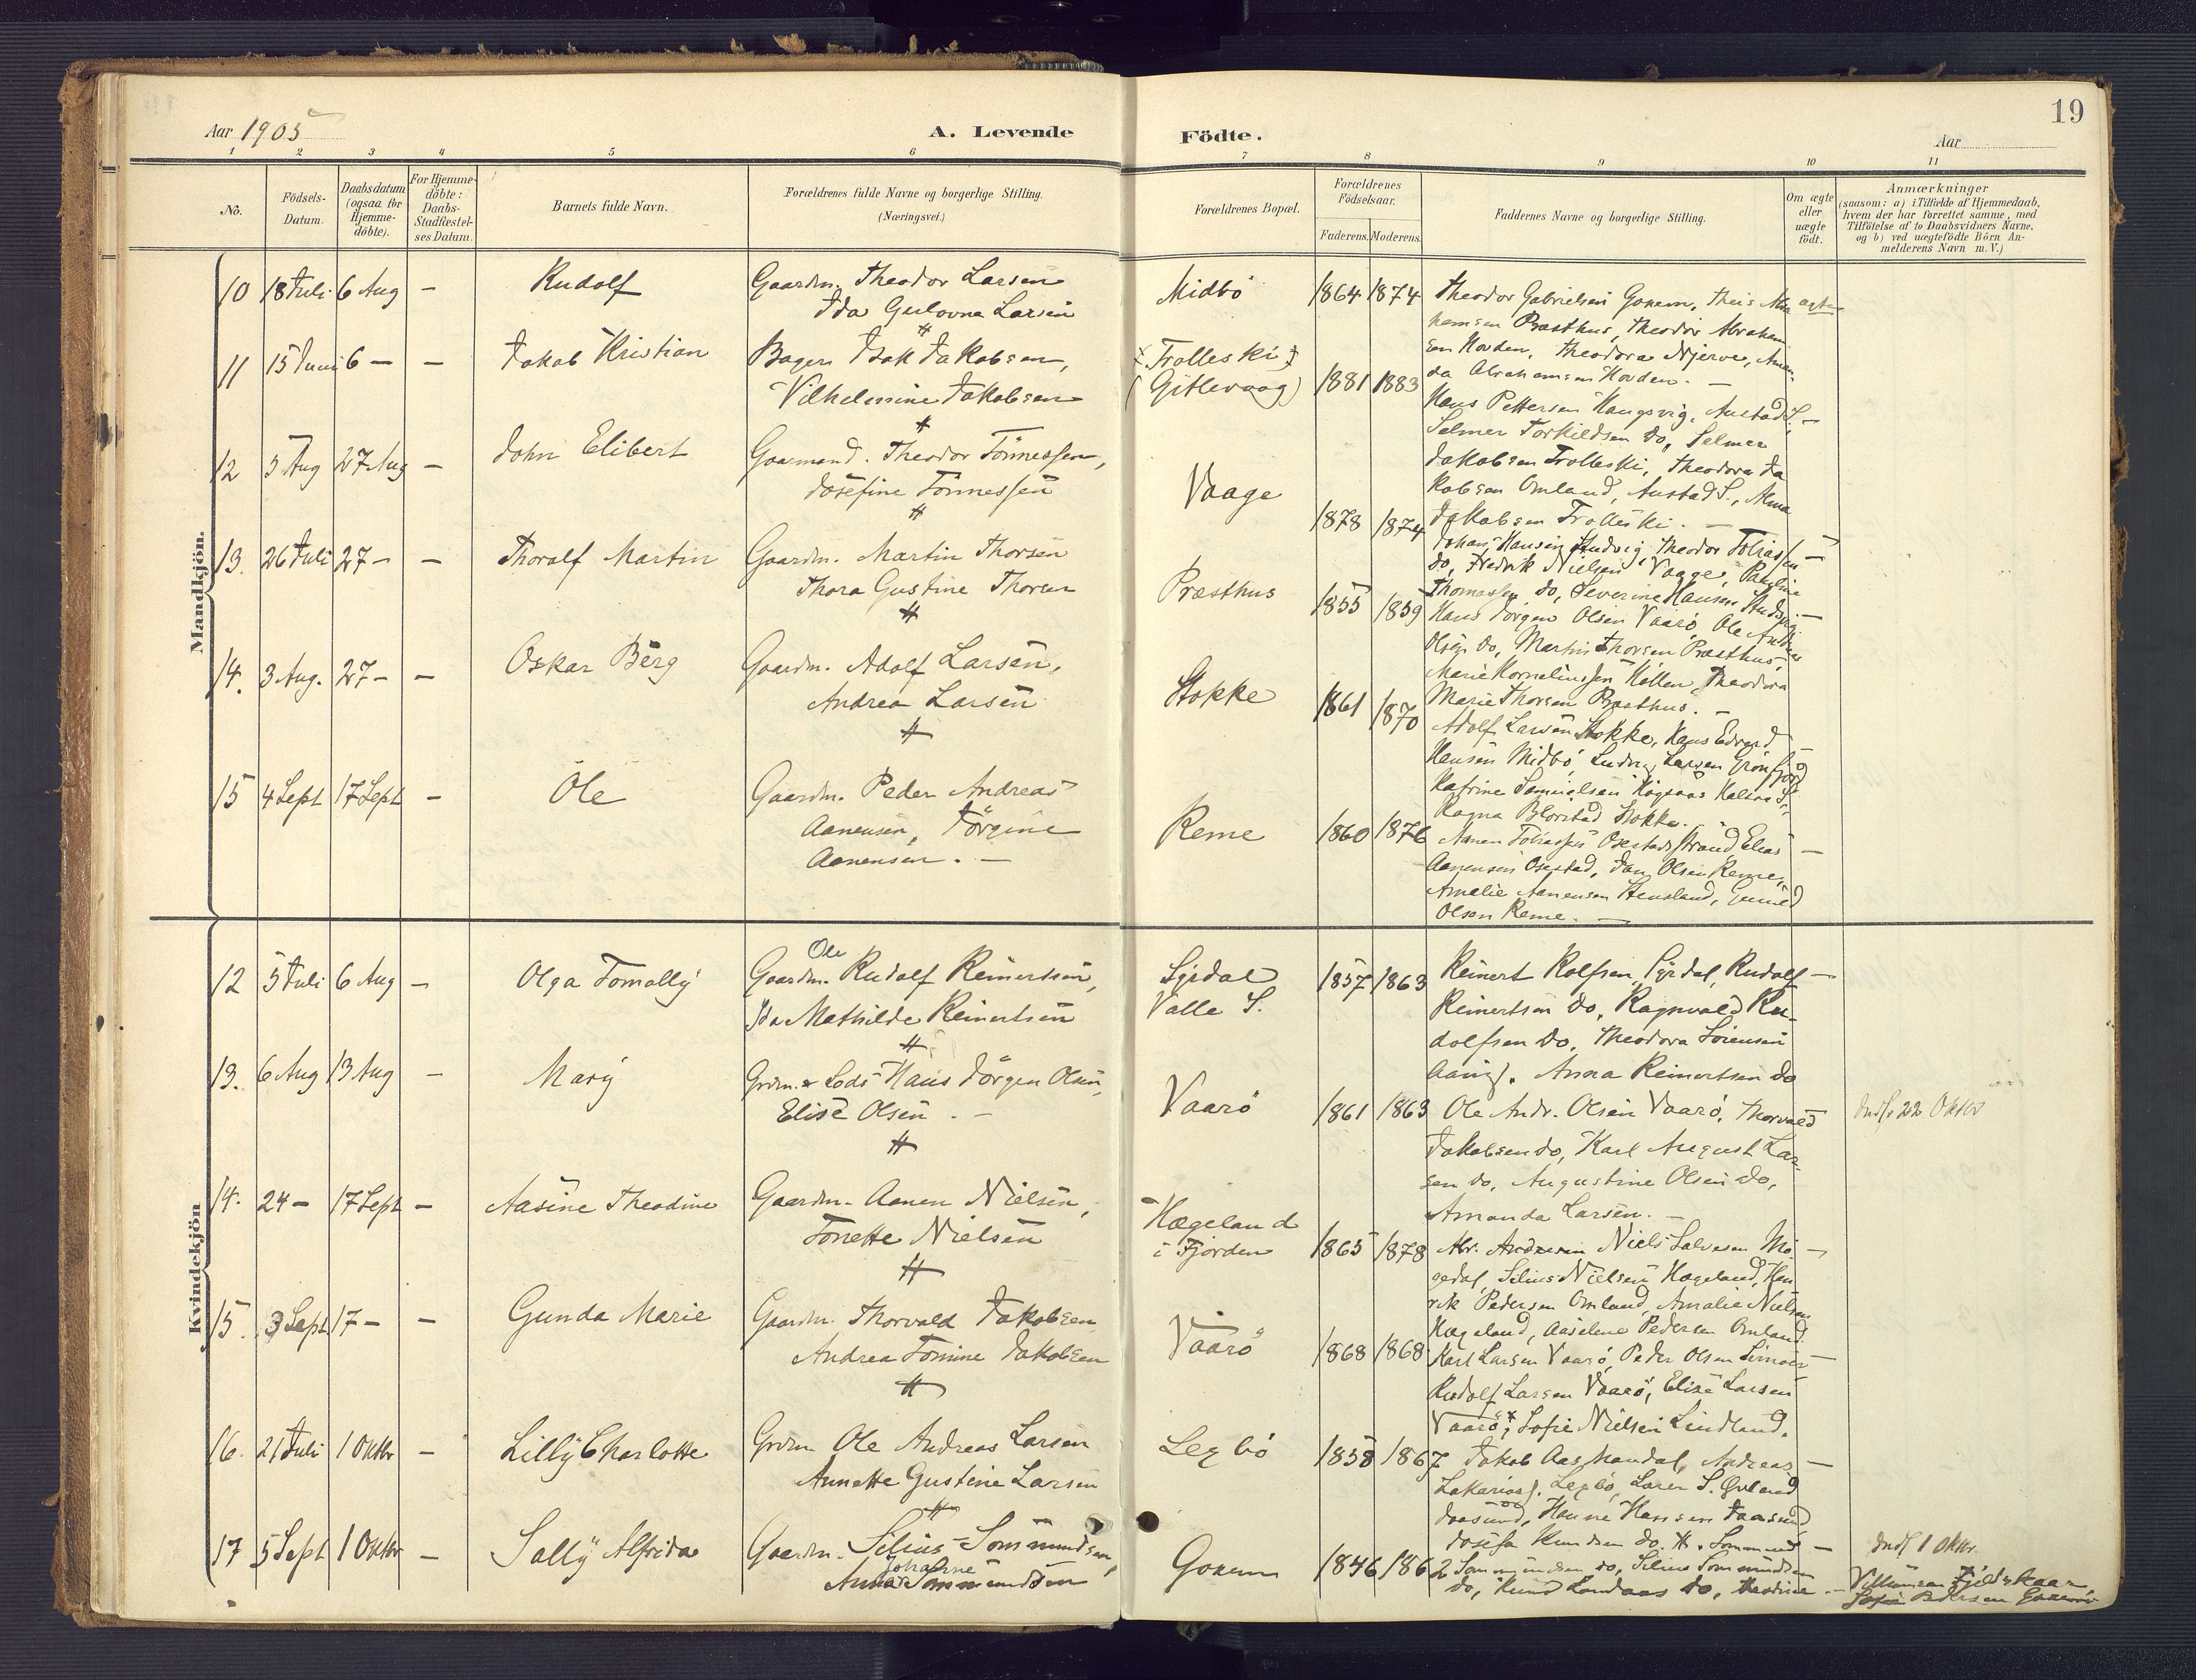 19
Aar 1905
A. Levende Födte.
Aar
1 2 3 4 5 6 7 8 9 10 11
No.
Födsels-
Datum.
Daabsdatum
(ogsaa for
Hjemme-
döbte).
For Hjemme-
döbte:
Daabs-
Stadfæstel-
ses Datum.
Barnets fulde Navn.
Forældrenes fulde Navne og borgerlige Stilling.
(Næringsvei.)
Forældrenes Bopæl.
Forældrenes
Födselsaar.
Faderens. Moderens.
Faddernes Navne og borgerlige Stilling.
Om ægte
eller
uægte
födt.
Anmærkninger
(saasom: a) i Tilfælde af Hjemmedaab,
hvem der har forrettet samme, med
Tilföielse af to Daabsvidners Navne,
og b) ved uægtefödte Börn An-
melderens Navn m. V.)
Mandkjön.
10 18 Juli 6 Aug — Rudolf
Gaardm. Theodor Larsen
Ida Gulovna Larsen
Midbö 1864 1874
Theodor Gabrielsen Goxem, Theis Abra ægte
hamsen Præsthus, Theodor Abraham
sen Hovden, Theodora Njerve, Aman-
da Abrahamsen Hovden. —
11 15 Juni 6 — — Jakob Kristian
Bager Isak Jakobsen,
Vilhelmine Jakobsen
Trolleski
(Gitlevaag) 1881 1883
Hans Pettersen Haugsvig, Austad S. —
Selmer Torkildsen do, Selmer
Jakobsen Trolleski, Theodora Ja
kobsen Omland, Austad S., Alma
Jakobsen Trolleski. —
12 5 Aug 27 Aug — John Elibert
Gaarmand. Theodor Tönnessen,
Josefine Tönnessen
Vaage 1878 1874
Johan Hansen Studvig, Theodor Tobiassen —
do, Fredrik Nielsen Vaage, Pauline
Thomassen do, Severine Hansen Studvig
13. 26 Juli 27 — — Thoralf Martin
Gaardm. Martin Thorsen
Thora Gustine Thorsen
Præsthus 1855 1859
Hans Jörgen Olsen Vaarö, Ole Andreas
Olsen do, Martin Thorsen Præsthus,
Marie Korneliussen Hollen, Theodora
Marie Thorsen Præsthus. —
14. 3 Aug. 27 — — Oskar Berg
Gaardm. Adolf Larsen,
Andrea Larsen
Stokke 1861 1870
Adolf Larsen Stokke, Hans Edvard —
Hansen Midbö, Ludvig Larsen Grönsfjord
Katrine Samuelsen Kögsaas Halsaa S,
Ragna Stokke. —
15 4 Sept 17 Sept — Ole
Gaardm. Peder Andreas
Aanensen, Jörgine
Aanensen. —
Reme 1860 1876
Aanen Tobiassen Osestad, Elias —
Aanensen Osestad, Jan Olsen Reme,
Amalie Aanensen Stensland, Gunild
Olsen Reme. —
Kvindekjön
12 5 Juli 6 Aug — Olga Tomally
Ole
Gaardm. Rudolf Reinertsen,
Ida Mathilde Reinertsen
Syrdal
Valle S. 1857 1863
Reinert Rolfsen, Syrdal, Rudolf —
Reinertsen do, Ragnvald Ru-
dolfsen do, Theodora Sörensen
Anna Reinertsen do
13. 6 Aug 13 Aug — Mary
Grdm. & Lods Hans Jörgen Olsen,
Elise Olsen. —
Vaarö 1861 1863
Ole Andr. Olsen Vaarö, Thorvald
Jakobsen do, Karl August Lar-
sen do, Augustine Olsen do,
Amanda Larsen. —
22 Oktbr
14. 24 — 17 Sept — Aasine Theodine
Gaardm. Aanen Nielsen,
Tonette Nielsen
Hægeland
i Fjorden 1865 1878
Abr. Andresen Niels Salvesen Mö- —
gedal, Selius Nielsen Hægeland, Hen
rik Pedersen Omland, Amalie Nielsen
Hægeland, Aaselene Pedersen Omland
15. 3 Sept 17 — — Gunda Marie
Gaardm. Thorvald Jakobsen
Andrea Tomine Jakobsen
Vaarö 1868 1868
Karl Larsen Vaarö, Peder Olsen —
Rudolf Larsen Vaarö, Elise Larsen
Vaarö, Sofie Nielsen Lindland.
16. 21 Juli 1 Oktbr — Lilly Charlotte
Grdm Ole Andreas Larsen
Annette Gustine Larsen
Legbö 1858 1867
Jakob Aas Mandal, Andreas —
Zakariass. Legbö, Lorer S. Gvland
Jaasund, Hanne Hansen Jaasund
Josefa Knudsen do.
17 5 Sept 1 Oktbr — Sally Alfrida
Gaardm. Selius Sommundsen,
Johanne
Anna Sommundsen
Goxem 1846 1862
Sommund —
Sommundsen do, Selius Sommundsen
do, Knud Londaas do, Theodine
1 Oktbr.
Villumsen Fjeldskaar,
Sofie Pedersen Goxem